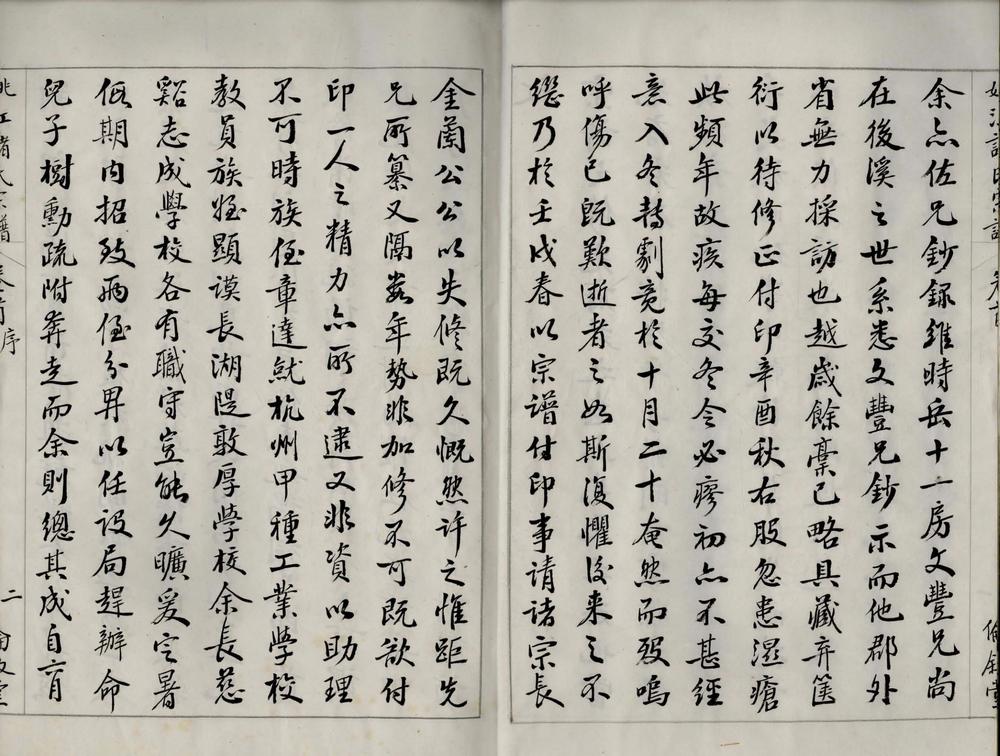 余亦佐兄鈔錄維時岳十一房文豐兄尚
在後溪之世系悉文豐兄鈔示而他郡外
省無力採訪也越歲餘稾已略具藏弆篋
衍以待修正付印辛酉秋右股忽患濕瘡
此頻年故疾每交冬令必瘳初亦不甚經
意入冬轉劇竟於十月二十奄然而歿嗚
呼傷已既歎逝者之如斯復懼後來之不
繼乃於壬戌春以宗譜付印事請諸宗長
金蘭公公以失修既久慨然許之惟距先
兄所纂又隔數年勢非加修不可既欲付
印一人之精力亦所不逮又非資以助理
不可時族侄章達就杭州甲種工業學校
教員族姪顯謨長湖隄敦厚學校余長慈
谿志成學校各有職守豈能久曠爰定暑
假期內招致兩侄分畀以任設局趕辦命
兒子樹勳疏附奔走而余則總其成自育
姚江諸氏宗譜 序 二